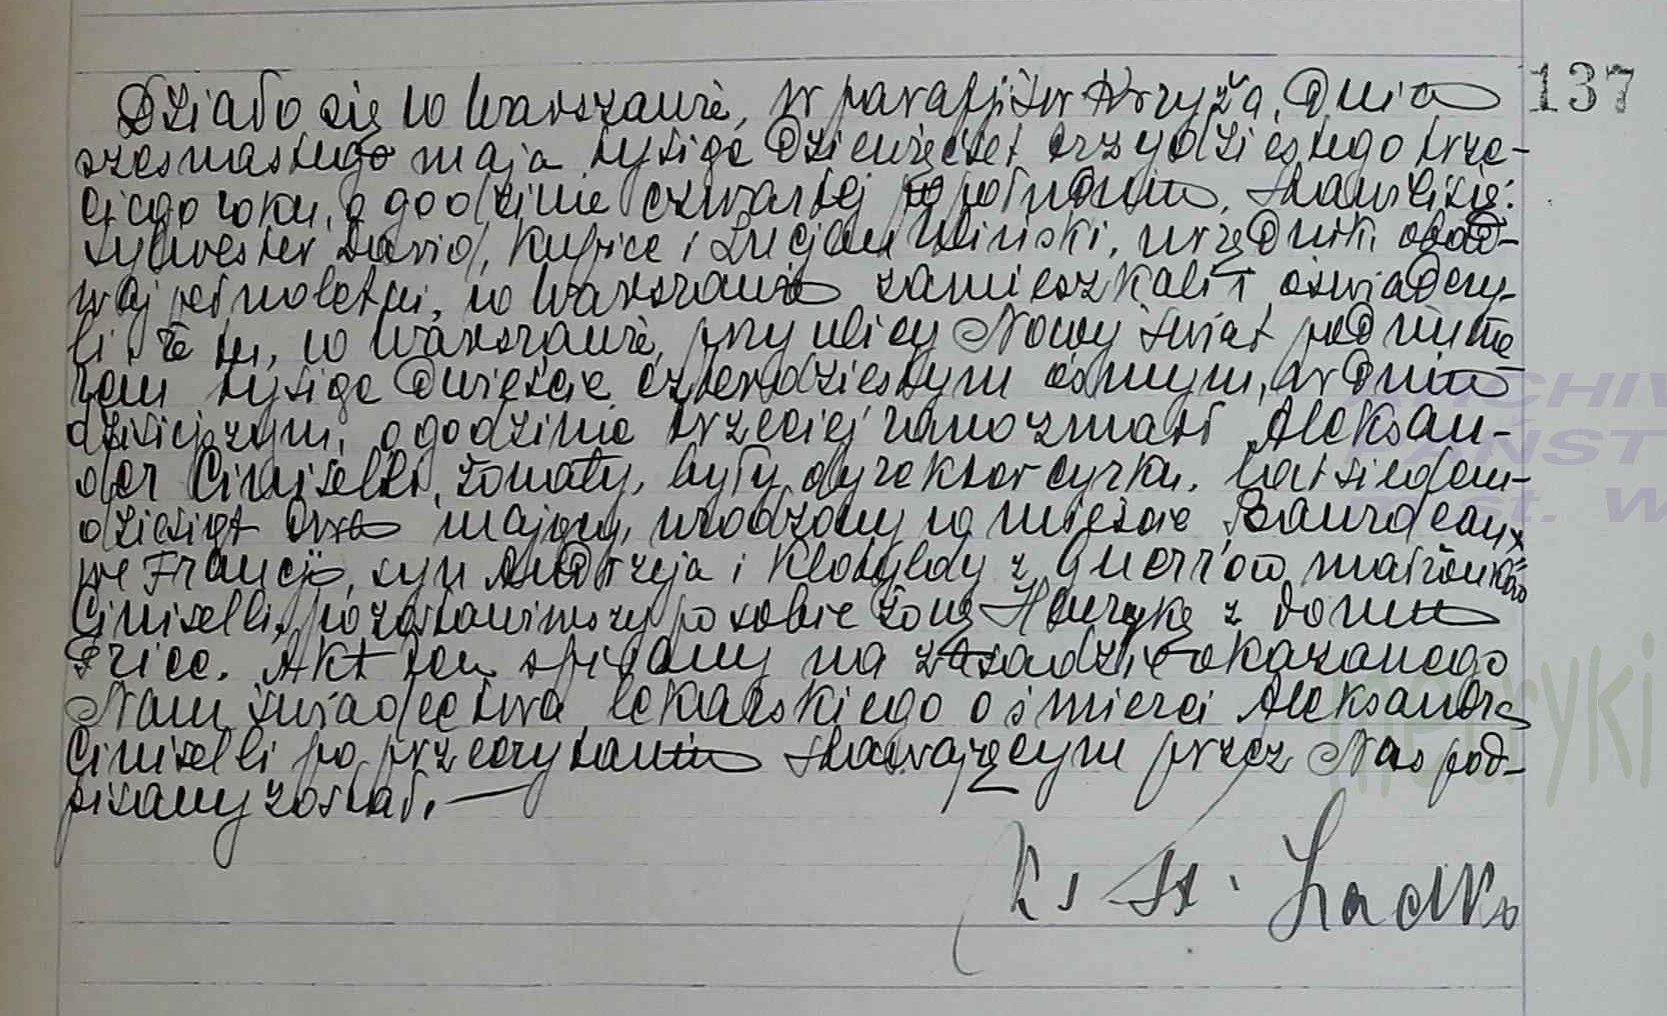 Działo się w Warszawie, w parafji Św Krzyża, Dnia 137
szesnastego maja tysiąc Dziewięćset trzydziestego trze-
ciego roku, o godzinie czwartej po południu. Stawili się:
Sylwester David, kupiec i Lucjan Uliński, urzędnik, obad-
waj pełnoletni, w Warszawie zamieszkali i oświadczy-
li, że tu, w Warszawie, przy ulicy Nowy Świat pod nume
rem tysiąc Dwieście czterdziestym ósmym, w Dniu
dzisiejszym, o godzinie trzeciej rano zmarł Aleksan-
der Ciniselli, żonaty, były dyrektor cyrku, lat siedem-
dziesiąt Dwa mający, urodzony w mieście Baurdeaux
we Francji, syn Andrzeja i Klotyldy z Guerr'ów małżonków
Ciniselli, pozostawiwszy po sobie żonę Henrykę z domu
Price. Akt ten spisany na zasadzie okazanego
Nam świadectwa lekarskiego o śmierci Aleksandra
Ciniselli po przeczytaniu stawającym przez Nas pod-
pisany został.
Ks St.
ARCHIW
PAŃST
m.st. W
metryki